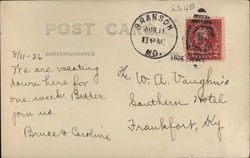 POST CARD
BRANSON
AUG 11
1 PM
MO.
8/11-26
CORRESPONDENCE
We are waiting
down here for
one week. Better
join us.
Bruce & Caroline
The W. A. Vaughn's
Southern Hotel
Frankfort, Ky